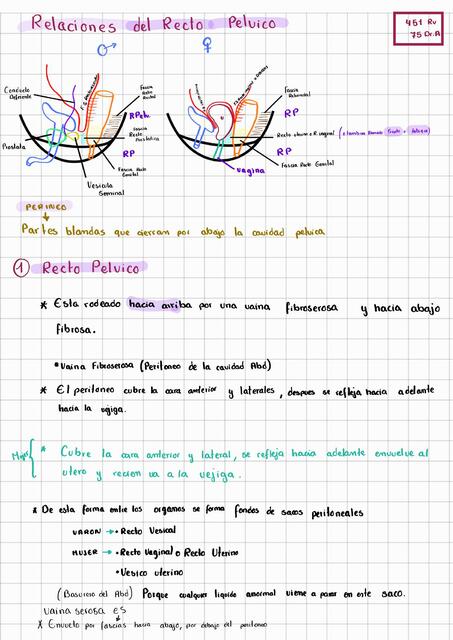 Relaciones del Recto Pelvico
451 Rv
75 Or.A
♂ ♀
Conducto
Deferente
Prostata
Vesicula
Seminal
Fascia
Recto
Rectal
RPelv.
Fascia
Recto
Prostatica
RP
Fascia Recto
Genital
Fascia
Rectorectal
RP
Recto uterino o R. vaginal
RP
Fascia Recto Genital
Vagina
PERINEO
Partes blandas que cierran por abajo la cavidad pelvica
1 Recto Pelvico
* Esta rodeado hacia arriba por una vaina fibroserosa y hacia abajo
fibrosa.
• Vaina Fibroserosa (Peritoneo de la cavidad Abd)
* El peritoneo cubre la cara anterior y laterales, despues se refleja hacia adelante
hacia la vejiga.
Mujer { * Cubre la cara anterior y lateral, se refleja hacia adelante envuelve al
utero y recien va a la vejiga.
* De esta forma entre los organos se forma fondos de sacos peritoneales
VARON → • Recto Vesical
MUJER → • Recto Vaginal o Recto Uterino
• Vesico uterino
(Basurero del Abd) Porque cualquier liquido anormal viene a parar en este saco.
Vaina serosa es
* Envuelto por fascias hacia abajo, por debajo del peritoneo